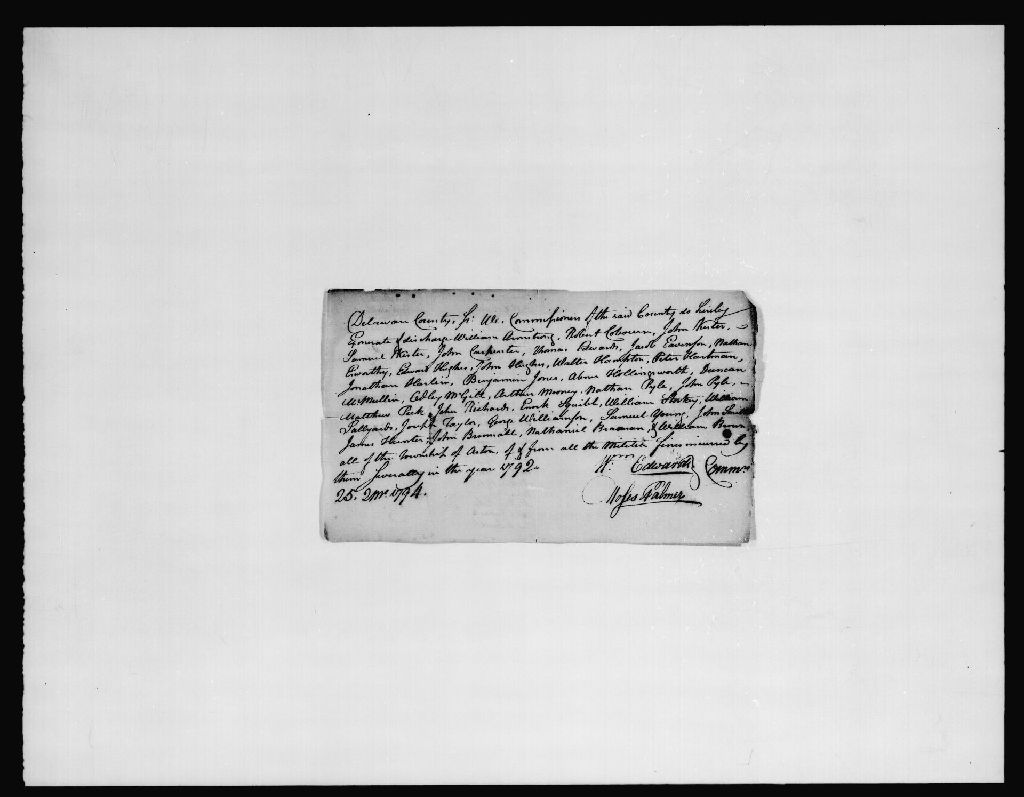 Delawar County, Ss: We, Commissioners of the said County do hereby
Exonerate & discharge William Armstrong, Robert Coburn, John Kester,
Samuel Kester, John Carpenter, Thomas Edwards, Jacob Evenson, Nathan
Gwathy, Edward Hughes, John Hughes, Walter Hampton, Peter Hartman,
Jonathan Harlin, Benjamin Jones, Abner Hollingsworth, Duncan
McMullin, Cedley McGill, Arthur Mooney, Nathan Pyle, John Pyle,
Matthew Park, John Richards, Enock Squibb, William Starky, William
Sallyards, Joseph Taylor, George Williamson, Samuel Young, John Smith
James Hunter, John Brumall, Nathaniel Brannan, & William Brown
all of the Township of Aston, of & from all the Militia fines incurred by
them Severally in the year 1792
Wm. Edwards Commrs
25. 2 mo. 1794.
Moses Palmer